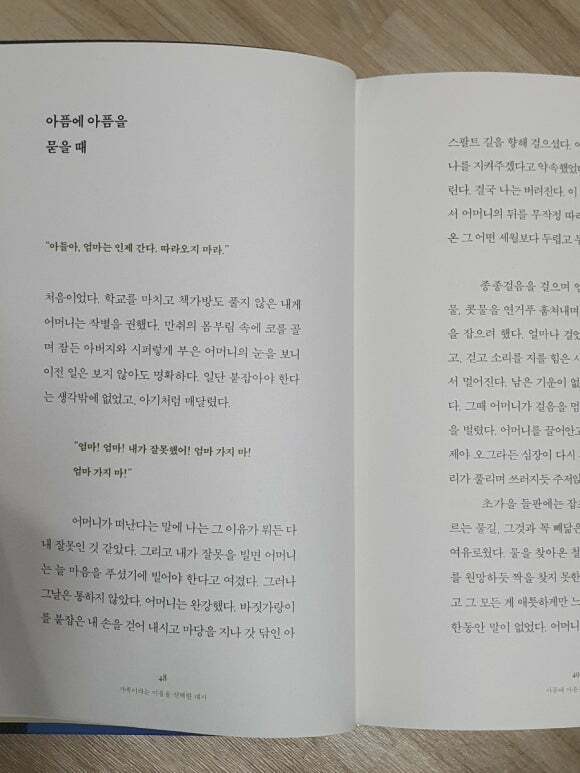 아픔에 아픔을
묻을 때
"아들아, 엄마는 인제 간다. 따라오지 마라."
처음이었다. 학교를 마치고 책가방도 풀지 않은 내게
어머니는 작별을 권했다. 만취의 몸부림 속에 코를 골
며 잠든 아버지와 시퍼렇게 부은 어머니의 눈을 보니
이전 일은 보지 않아도 명확하다. 일단 붙잡아야 한다
는 생각밖에 없었고, 아기처럼 매달렸다.
"엄마! 엄마! 내가 잘못했어! 엄마 가지 마!
엄마 가지 마!"
어머니가 떠난다는 말에 나는 그 이유가 뭐든 다
내 잘못인 것 같았다. 그리고 내가 잘못을 빌면 어머니
는 늘 마음을 푸셨기에 빌어야 한다고 여겼다. 그러나
그날은 통하지 않았다. 어머니는 완강했다. 바짓가랑이
를 붙잡은 내 손을 걷어 내시고 마당을 지나 갓 닦인 아
48
가족이라는 이름을 선택할 때
스팔트 길을 향해 걸으셨다.
나를 지켜주겠다고 약속했었
린다. 결국 나는 버려진다. 이
서 어머니의 뒤를 무작정 따라
온 그 어떤 세월보다 두렵고
종종걸음을 걸으며
물, 콧물을 연거푸 훔쳐내며
을 잡으려 했다. 얼마나 걸었
고, 걷고 소리를 지를 힘은
서 멀어진다. 남은 기운이 없
다. 그때 어머니가 걸음을 멈
을 벌렸다. 어머니를 끌어안고
제야 오그라든 심장이 다시
리가 풀리며 쓰러지듯 주저앉
초가을 들판에는
르는 물길, 그것과 똑 빼닮은
여유로웠다. 물을 찾아온 철
를 원망하듯 짝을 찾지 못한
고 그 모든 게 애틋하게만 느
한동안 말이 없었다. 어머니
49
아픔에 아픔